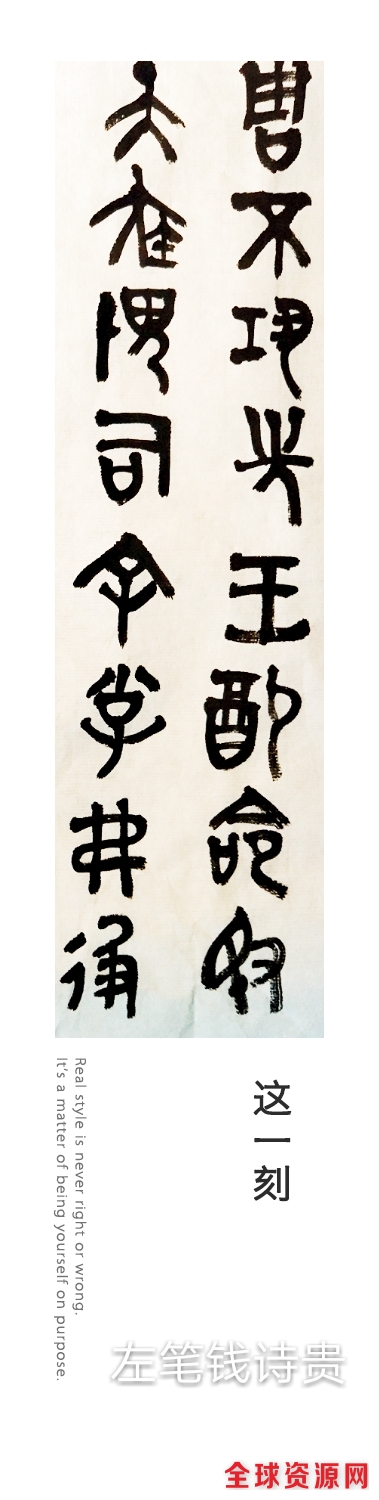 周不巩先王配命敃
天疾畏司余小子弗彶
这一刻
Real style is never right or wrong.
It's a matter of being yourself on purpose.
左笔钱诗贵
全球资源网